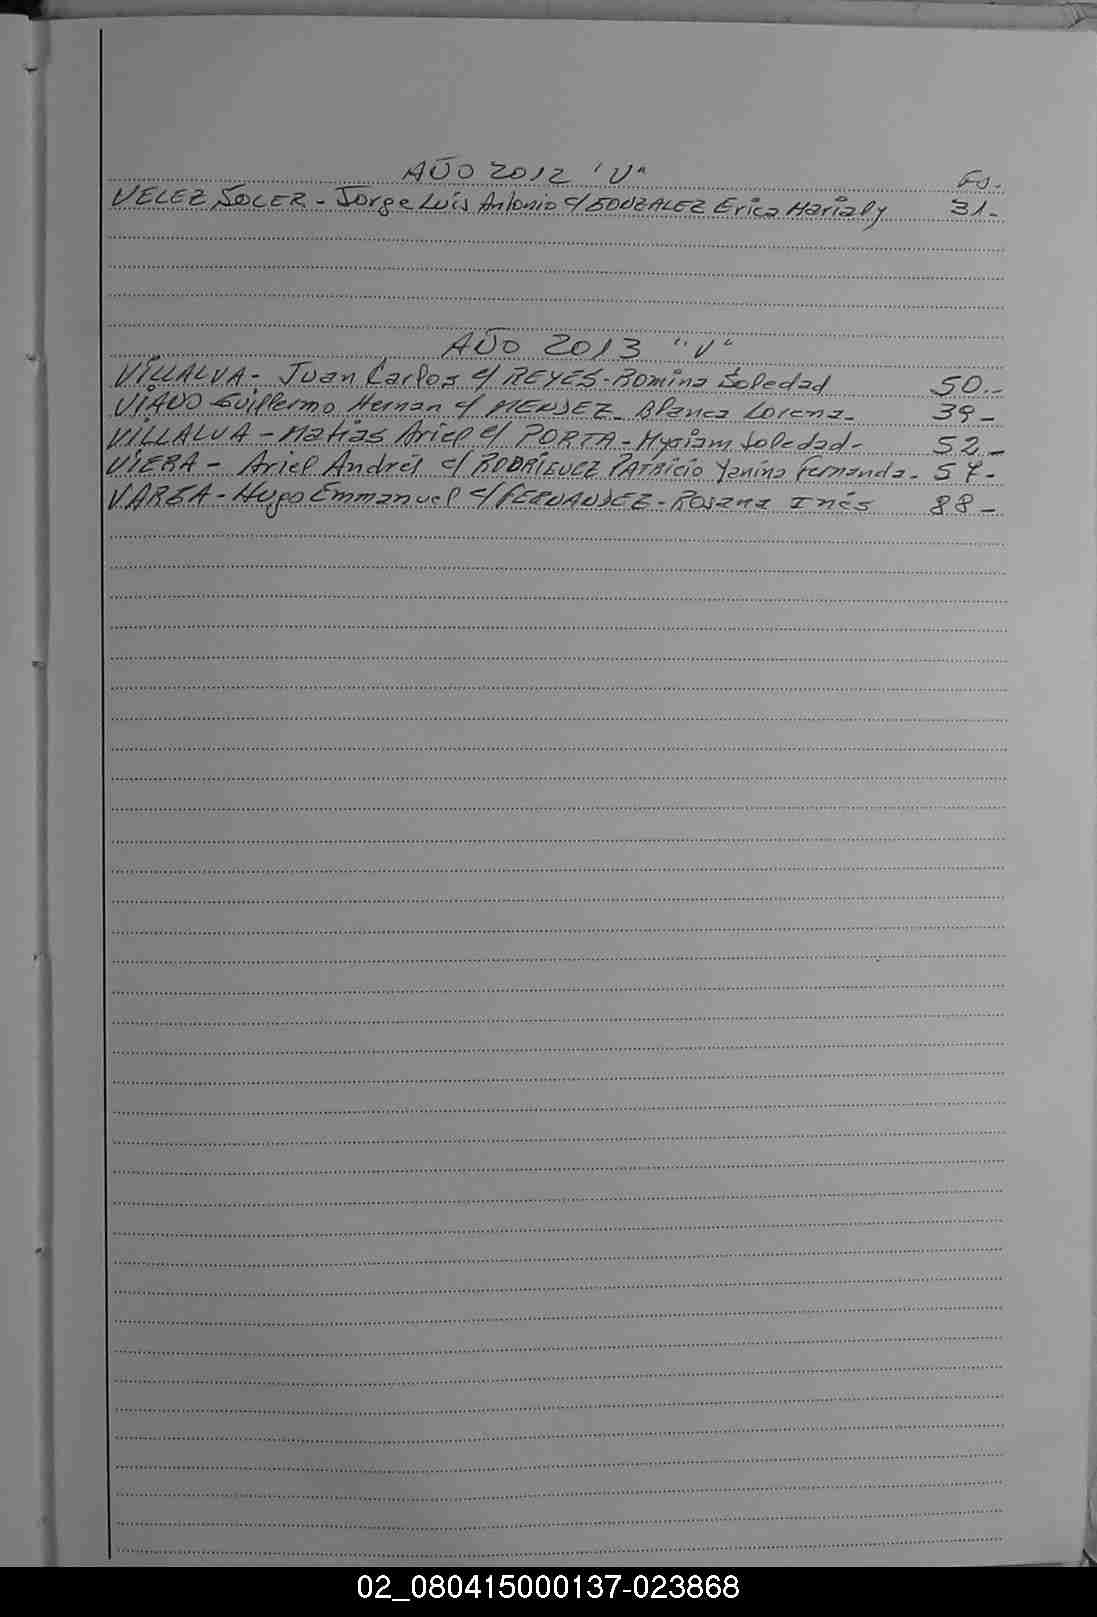 AÑO 2012 "V"
Fs.
VELEZ SOLER - Jorge Luis Antonio c/ GONZALEZ Erica Marialy 31-
AÑO 2013 "V"
VILLALVA - Juan Carlos c/ REYES - Romina Soledad 50.-
VIANO Guillermo Hernan c/ MENDEZ - Blanca Lorena - 39-
VILLALVA - Matias Ariel c/ PORTA - Myriam Soledad - 52-
VIERA - Ariel Andrés c/ RODRIGUEZ PATRICIO Yanina Fernanda. 57-
VARGA - Hugo Emmanuel c/ FERNANDEZ - Rosana Inés 88-
02_080415000137-023868